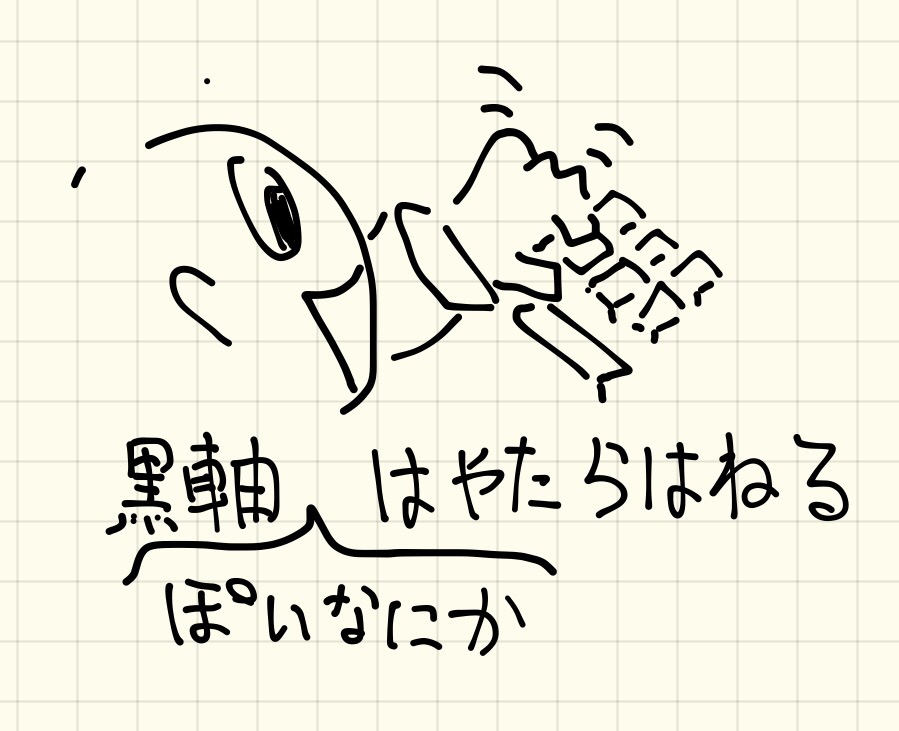 黒軸 はやたらはねる
ぽいなにか